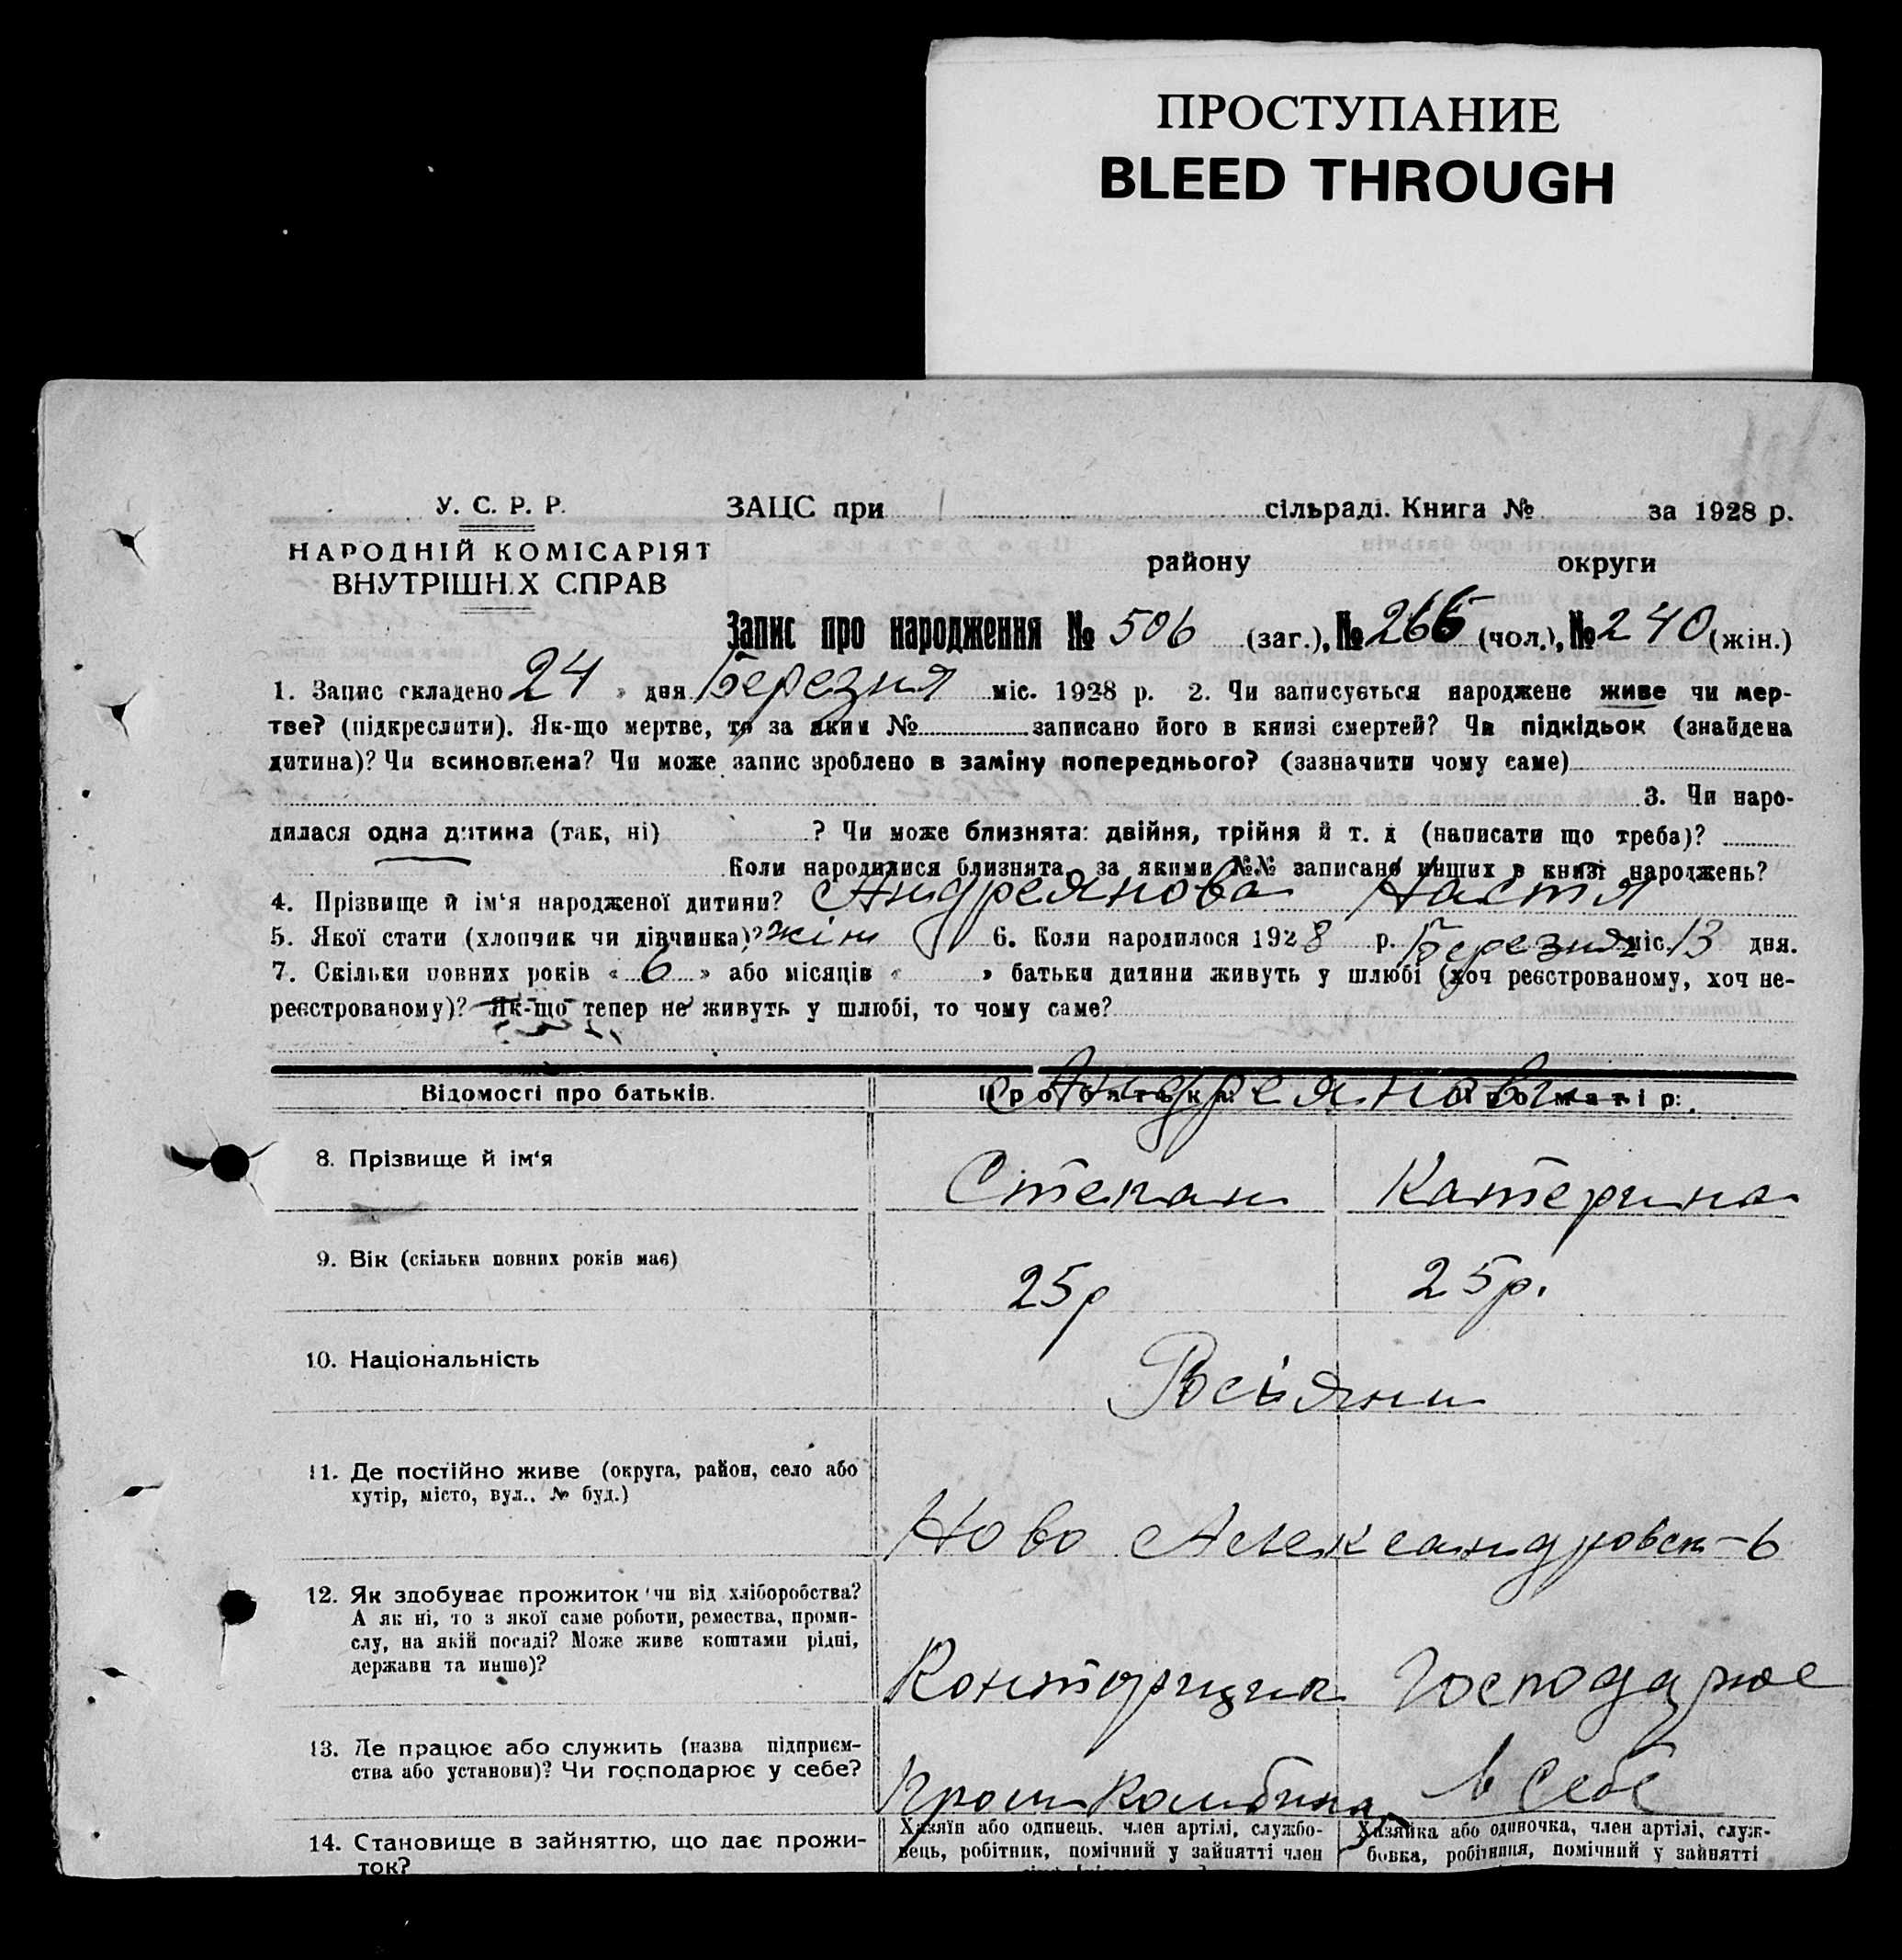 ПРОСТУПАНИЕ
BLEED THROUGH
У. С. Р. Р.
НАРОДНІЙ КОМІСАРІЯТ
ВНУТРІШН.Х СПРАВ
ЗАЦС при сільраді. Книга № за 1928 р.
району округи
Запис про народження № 506 (заг.), № 266 (чол.), № 240 (жін.)
1. Запис складено 24 » дня Березня міс. 1928 р. 2. Чи записується народжене живе чи мер-
тве? (підкреслити). Як-що мертве, то за яким № записано його в книзі смертей? Чи підкідьок (знайдена
дитина)? Чи всиновлена? Чи може запис зроблено в заміну попереднього? (зазначити чому саме)
3. Чи наро-
дилася одна дитина (так, ні) ? Чи може близнята: двійня, трійня й т. д (написати що треба)?
Коли народилися близнята, за якими №№ записано инших в книзі народжень?
4. Прізвище й ім'я народженої дитини? Андреянова Настя
5. Якої стати (хлопчик чи дівчинка)? жін 6. Коли народилося 1928 р. Березня міс. 13 дня.
7. Скільки повних років « 6 » або місяців « » батьки дитини живуть у шлюбі (хоч реєстрованому, хоч не-
реєстрованому)? Як-що тепер не живуть у шлюбі, то чому саме?
Відомості про батьків. Про батька: Про матір:
Андреянови
8. Прізвище й ім'я Степан Катерина
9. Вік (скільки повних років має) 25р 25р.
10. Національність Росіяни
11. Де постійно живе (округа, район, село або
хутір, місто, вул., № буд.)
Ново Александровск-6
12. Як здобуває прожиток чи від хліборобства?
А як ні, то з якої саме роботи, ремества, проми-
слу, на якій посаді? Може живе коштами рідні,
держави та инше)?
Конторщик Господарює
13. Де працює або служить (назва підприєм-
ства або установи)? Чи господарює у себе?
в себе
14. Становище в зайняттю, що дає прожи-
ток?
Хазяїн або одинець, член артілі, службо-
вець, робітник, помічний у зайнятті член
Хазяйка або одиночка, член артілі, служ-
бовка, робітниця, помічний у зайнятті